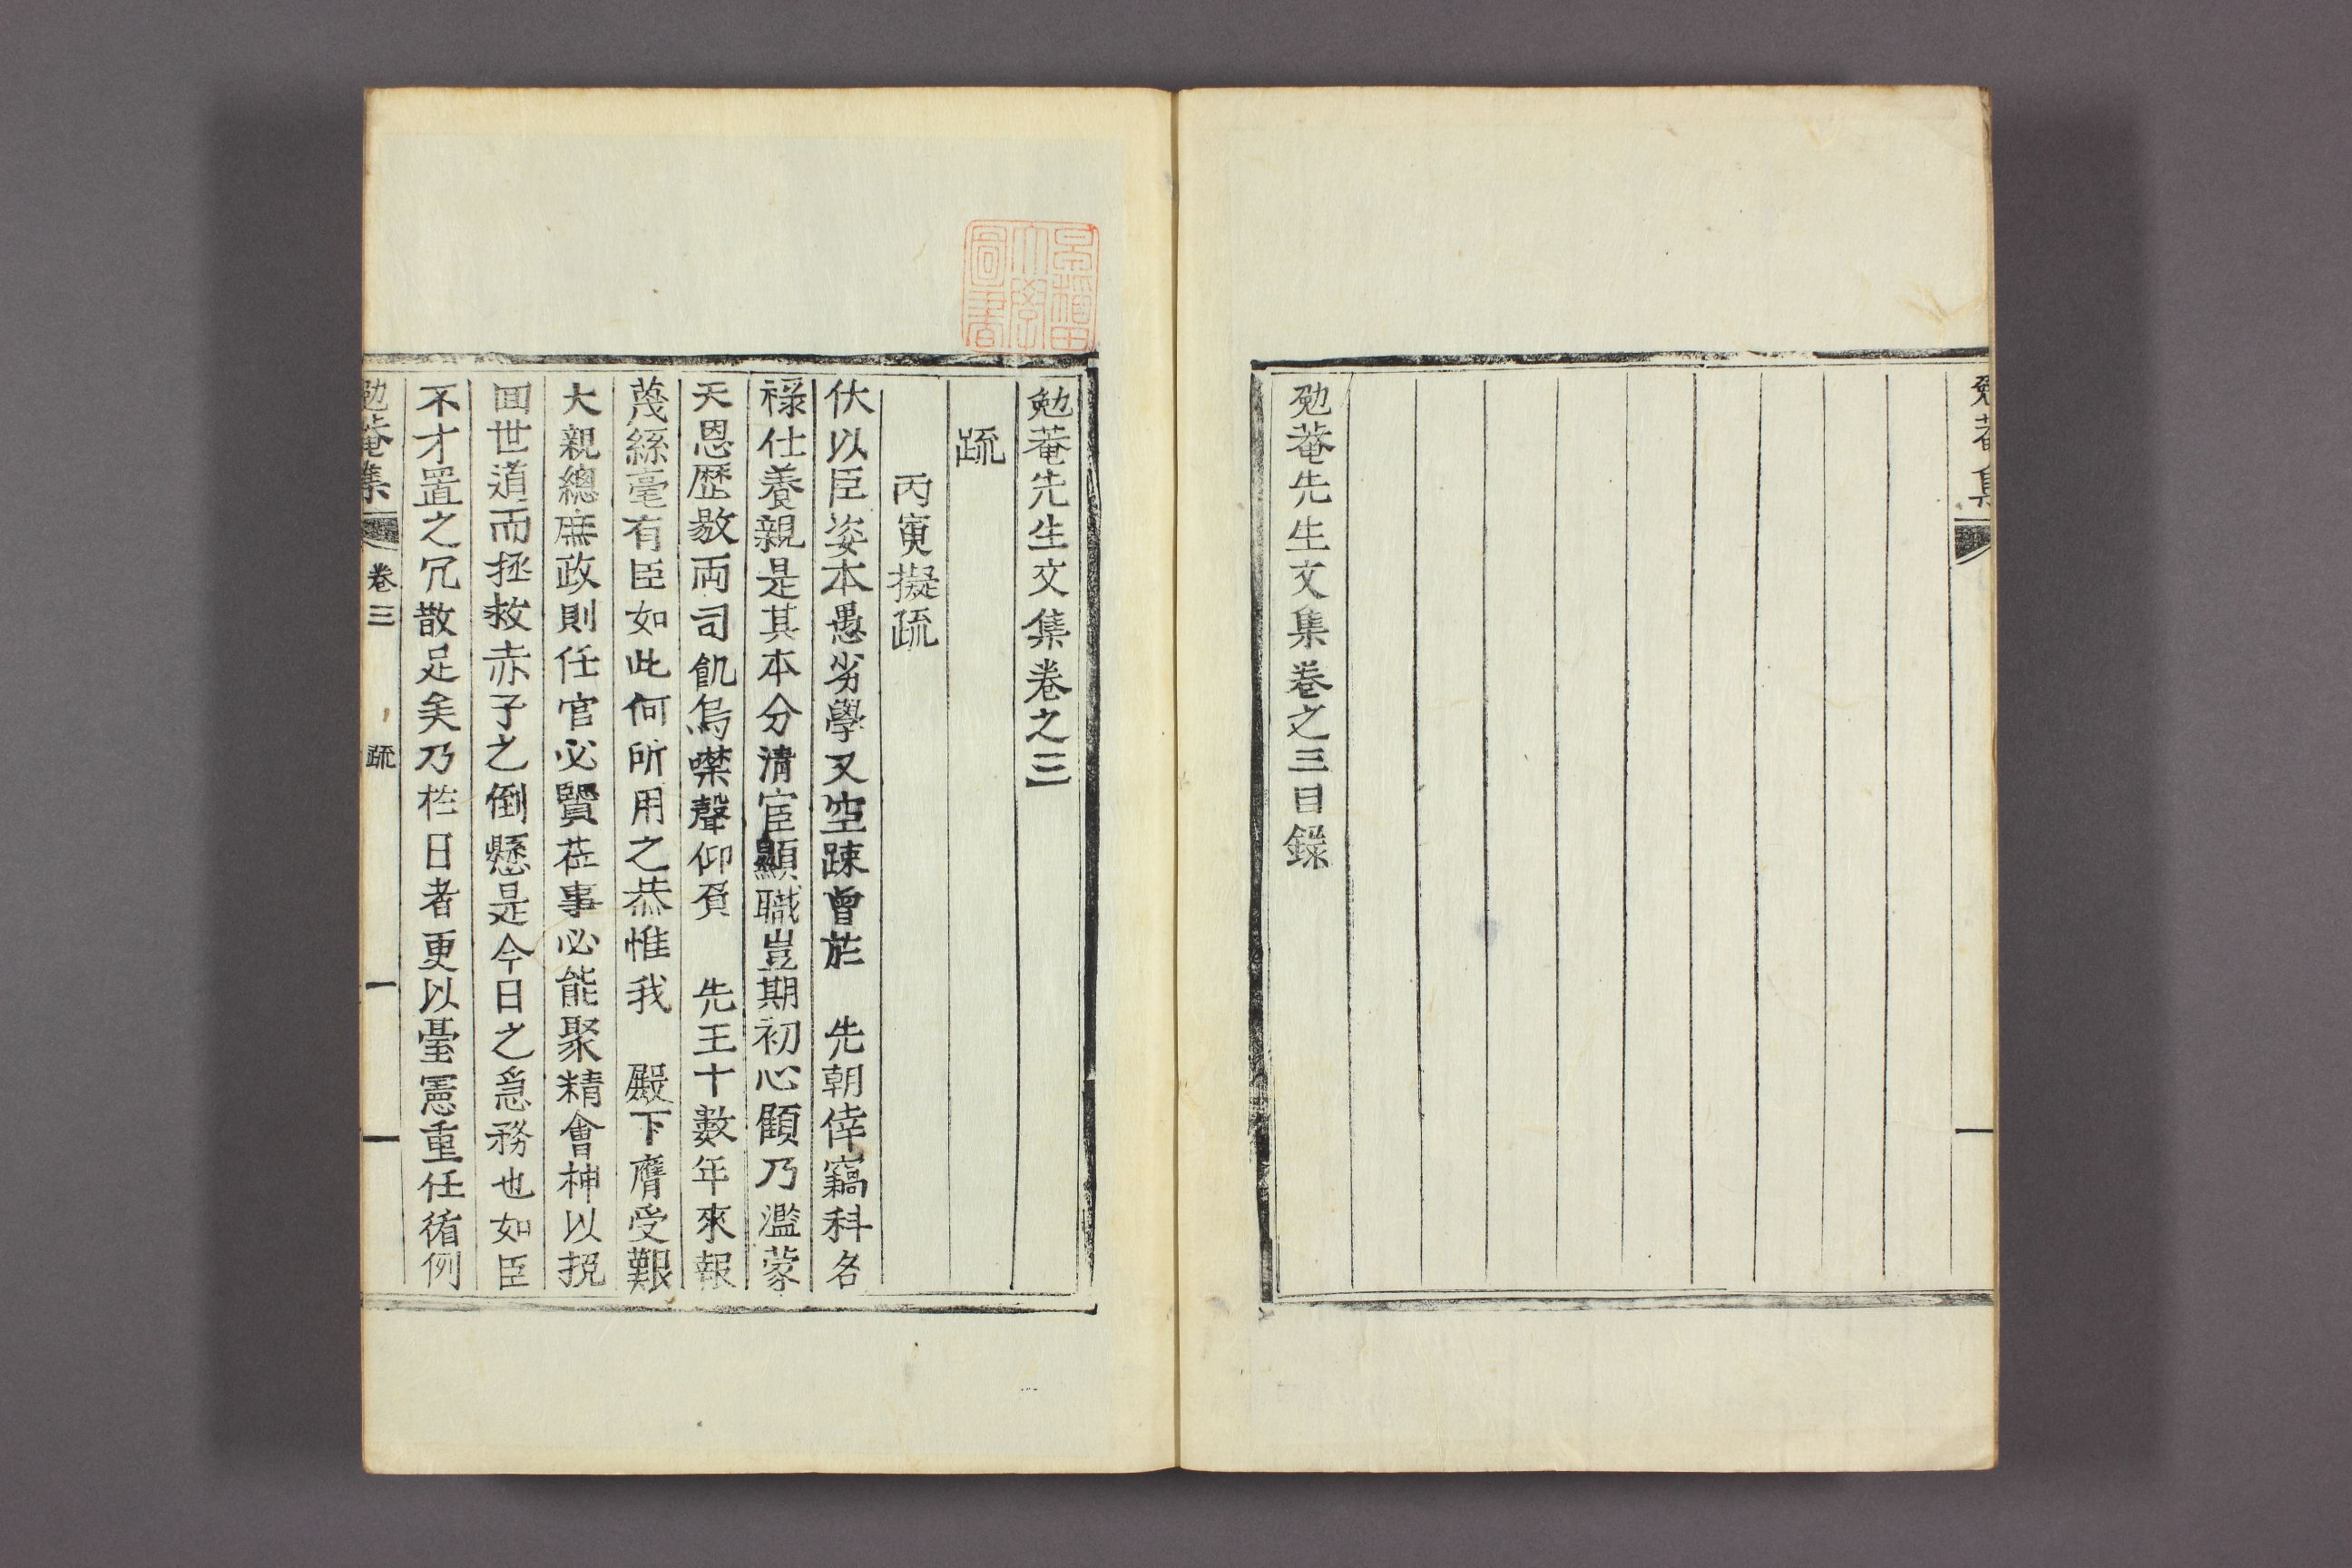 勉菴集
勉菴先生文集卷之三目錄
早稻田
大學
圖書
勉菴先生文集卷之三
疏
丙寅擬疏
伏以臣姿本愚劣學又空踈曾於 先朝倖竊科名
祿仕養親是其本分淸宦顯職豈期初心顧乃濫蒙
天恩歷敭兩司飢烏噤聲仰負 先王十數年來報
蔑絲毫有臣如此何所用之恭惟我 殿下膺受艱
大親總庶政則任官必賢莅事必能聚精會神以挽
回世道而拯救赤子之倒懸是今日之急務也如臣
不才置之冗散足矣乃於日者更以臺憲重任循例
勉菴集 卷三 疏 一